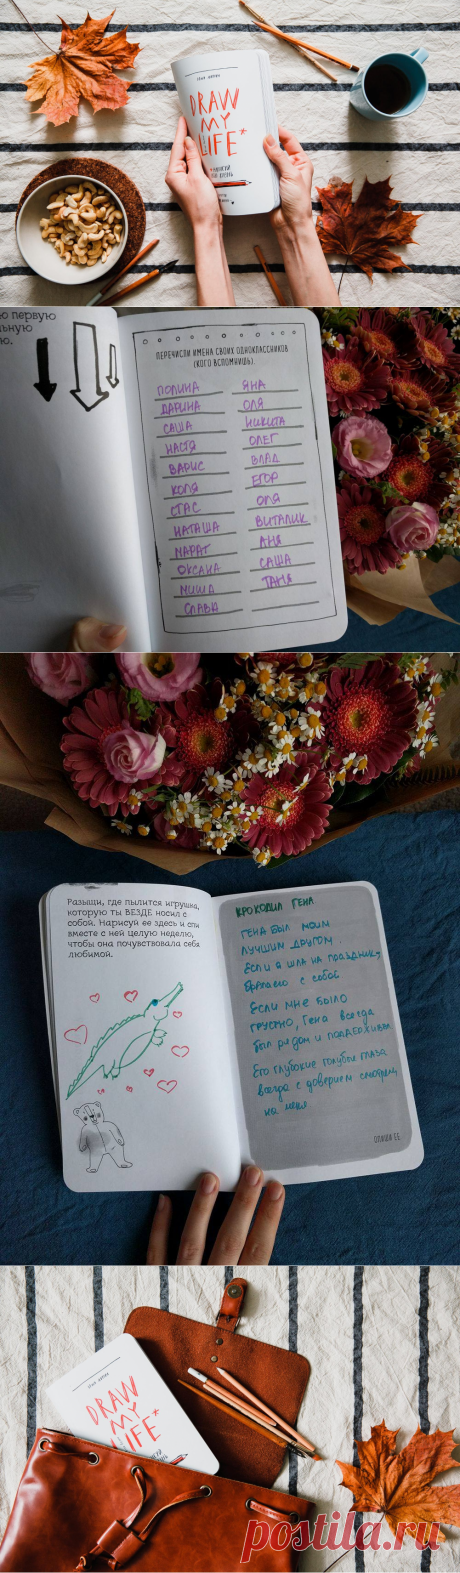 DRAW
MY
LIFE*
ю первую
льную
ю.
ПЕРЕЧИСЛИ ИМЕНА СВОИХ ОДНОКЛАССНИКОВ
(КОГО ВСПОМНИШЬ).
ПОЛИНА
ДАРИНА
САША
НАСТЯ
ВАРИС
КОЛЯ
СТАС
НАТАША
МАРАТ
ОКСАНА
МИША
СЛАВА
ЯНА
ОЛЯ
НИКИТА
ОЛЕГ
ВЛАД
ЕГОР
ОЛЯ
ВИТАЛИК
АНЯ
САША
ТАНЯ
Разыщи, где пылится игрушка,
которую ты ВЕЗДЕ носил с
собой. Нарисуй ее здесь и спи
вместе с ней целую неделю,
чтобы она почувствовала себя
любимой.
КРОКОДИЛ ГЕНА
ГЕНА БЫЛ МОИМ
ЛУЧШИМ ДРУГОМ.
Если я шла на праздник,
брала его с собой
Если мне было
грустно, Гена всегда
был рядом и поддерживал
Его глубокие голубые глаза
всегда с доверием смотрели
на меня
ОПИШИ ЕЕ
DRAW
MY
LIFE*
postila.ru